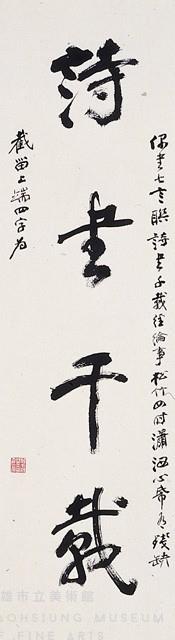 詩書千載
偶書七言聯詩書千載經綸事松竹四時瀟洒心席為殘缺
截留上端四字為
雄市立美術館
AOHSIUNG MUSEUM
F FINE ARTS